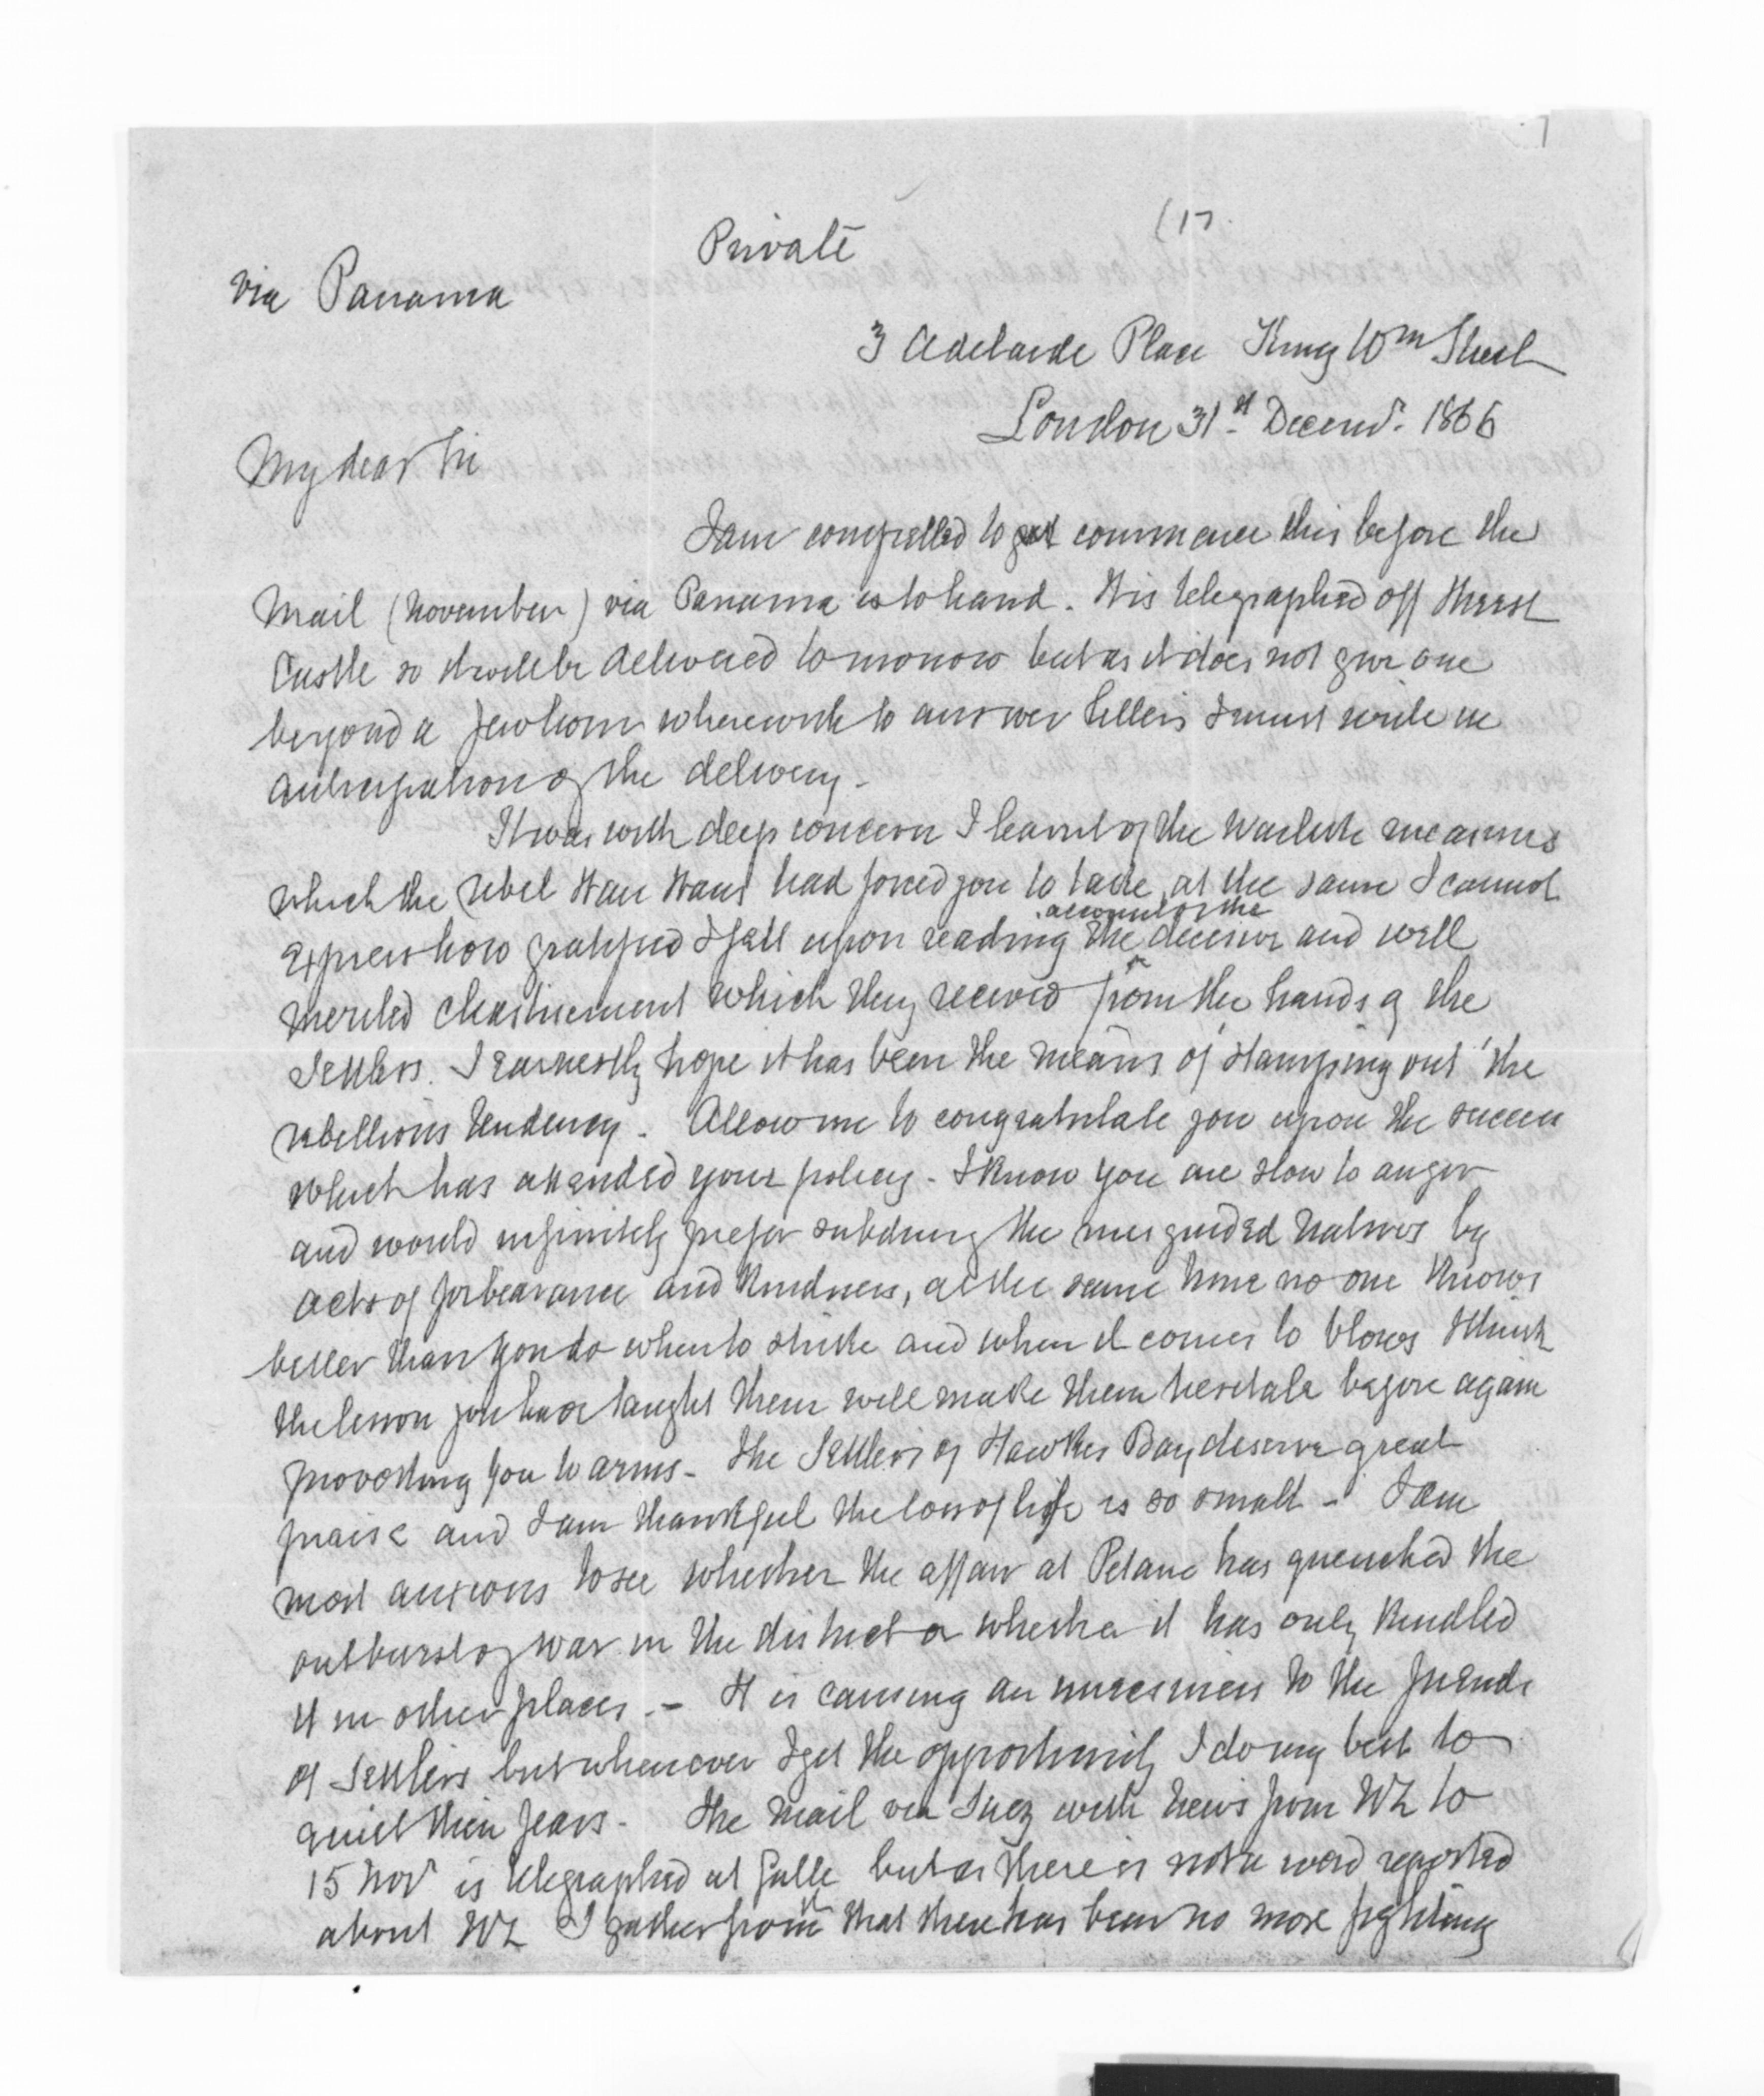 Private
(17.
via Panama
3 Adelaide Place King Wm Street
London 31st Decemr. 1866
My dear Sir
I am compelled to commence this before the
Mail (November) via Panama is to hand. It is telegraphed off Hurst
Castle so it will be delivered tomorrow but as it does not give one
beyond a few hours wherewith to answer letters I must write in
anticipation of the delivery -
It was with deep concern I learnt of the warlike measures
which the rebel Hau Haus had forced you to take, at the same I cannot
express how gratified I felt upon reading the account of the decisive and well
merited chastisement which they received from the hands of the
Settlers. I earnestly hope it has been the means of 'stamping out' the
rebellious tendency. Allow me to congratulate you upon the success
which has attended your policy - I know you are slow to anger
and would infinitely prefer subduing the misguided natives by
acts of forbearance and kindness, at the same time no one knows
better than you do when to strike and when it comes to blows I think
the lesson you have taught them will make them hesitate before again
provoking you to arms - The Settlers of Hawkes Bay deserve great
praise and I am thankful the loss of life is so small - I am
most anxious to see whether the affair at Petane has quenched the
outburst of war in the district or whether it has only kindled
it in other places. - It is causing an uneasiness to the friends
of Settlers but whenever I get the opportunity I do my best to
quiet their fears - The Mail via Suez with news from NZ to
15 Novr is telegraphed at Galle but as there is not a word reported
about NZ I gather from it that there has been no more fighting